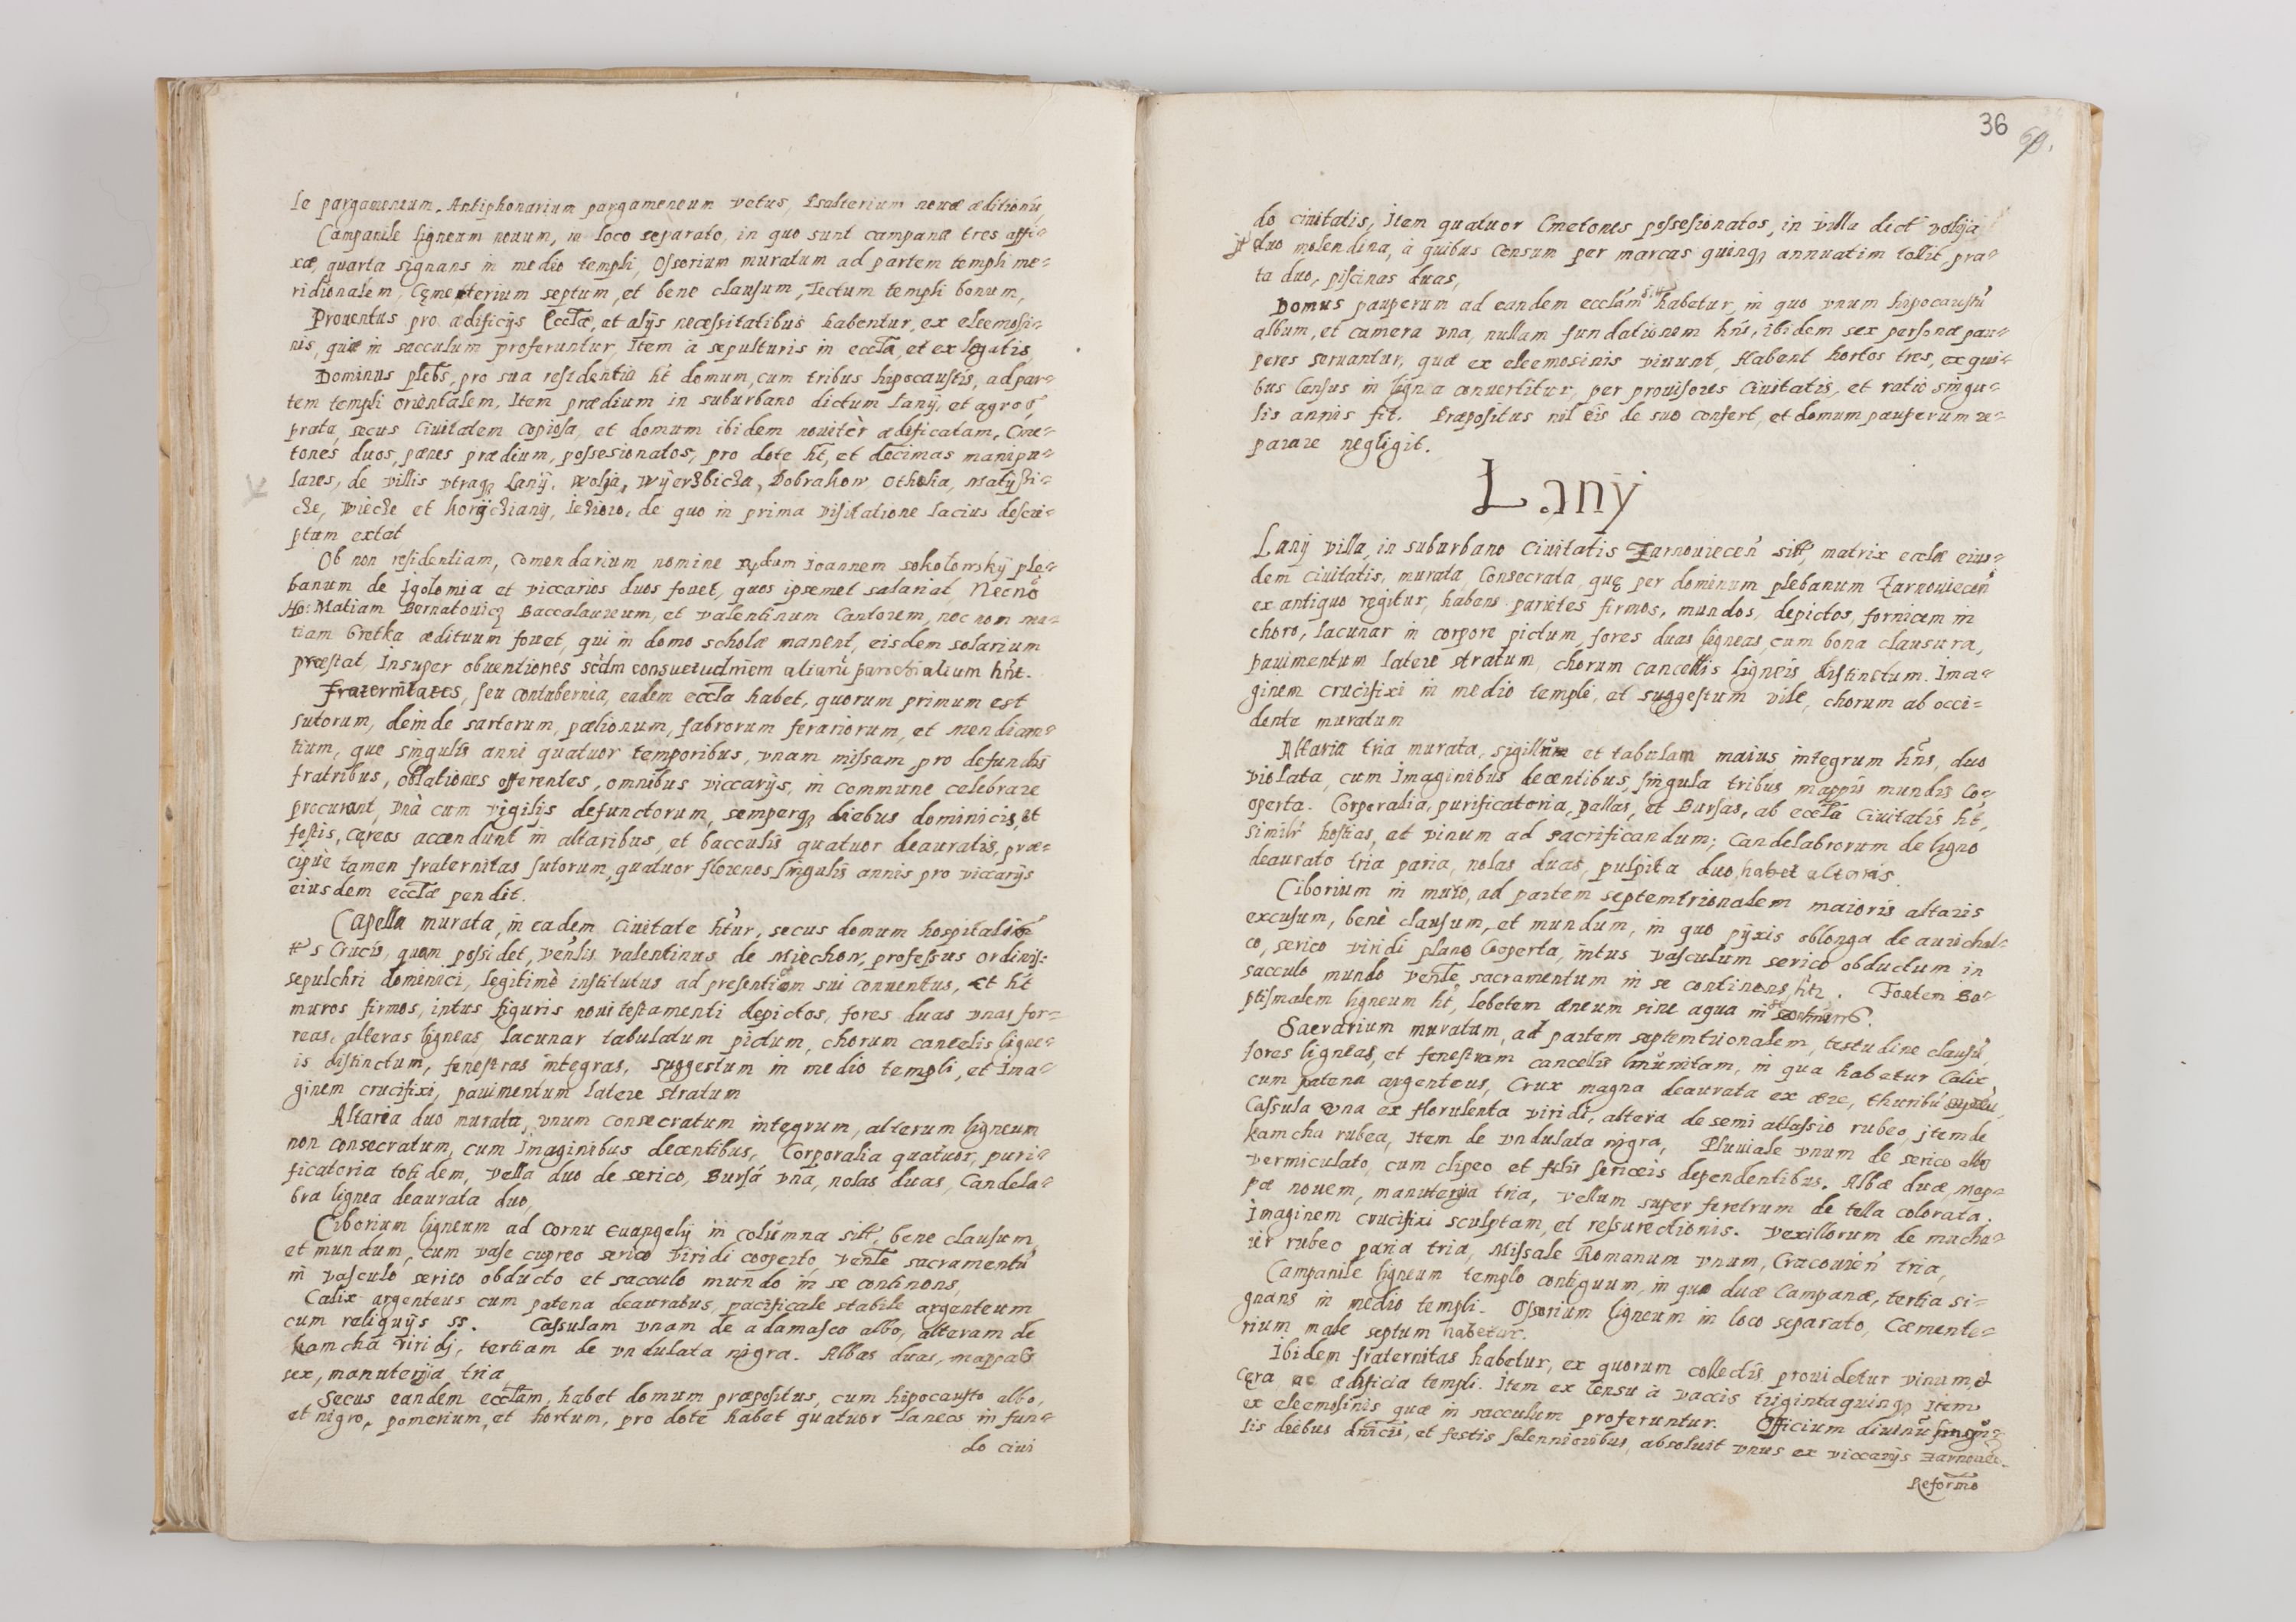 le pargameneum. Antiphonarium pargameneum vetus, Psalterium nouæ æditionis,
Campanile ligneum nouum, in loco separato, in quo sunt campanæ tres affi=
xæ, quarta signans in medio templi, Ossorium muratum ad partem templi me=
ridionalem, Cęmenterium septum, et bene clausum, Tectum templi bonum,
Prouentus pro ædificijs Eccłæ, et alijs necæssitatibus habentur, ex eleemosi=
nis, quæ in sacculum proferuntur, Item à sepulturis in eccła, et ex legatis,
Dominus plebs, pro sua residentia ht domum, cum tribus hipocaustis, ad par=
tem templi orientalem, Item prædium in suburbano dictum Lanÿ, et agros,
prata, secus Ciuitatem copiosa, et domum ibidem nouiter ædificatam, Cme=
tones duos, pænes prædium, possesionatos, pro dote ht, et decimas manipu=
lares, de villis vtraqȝ Lanÿ, Wolja, Wÿerzbicza, Dobrakow, Otholia, Małÿszi=
cze, Viecze et horÿcziany, Iezioro, de quo in prima visitatione lacius descri=
ptum extat
Ob non residentiam, Comendarium nomine Rndum Ioannem Sokolowskÿ ple=
banum de Igolomia et viccarios duos fouet, quos ipsemet salariat, Necnō
Ho: Matiam Bernatouicz Baccalaureum, et Valentinum Cantorem, nec non ma=
tiam Gretka ædituum fouet, qui in domo scholæ manent, eisdem solarium
præstat, Insuper obuentiones scdm consuetudinem aliarū parochialium hnt.
Fraternitates, seu contubernia, eadem eccła habet, quorum primum est
sutorum, deinde sartorum, pælionum, fabrorum ferariorum, et mendican=
tium, que singulis anni quatuor temporibus, vnam missam, pro defunctis
fratribus, oblationes offerentes, omnibus viccarijs, in commune celebrare
procurant, vnà cum vigilijs defunctorum, semperqȝ diebus dominicis, et
festis, cęreos accendunt in altaribus, et bacculis quatuor deauratis, præ=
cipuè tamen fraternitas sutorum, quatuor florenos singulis annis pro viccarijs
eiusdem eccłæ pendit.
Capella murata, in eadem Ciuitate htur, secus domum hospitalis
s Crucis, quam possidet, venlis Valentinus de Miechow, professus ordinis:
sepulchri dominici, legitimè institutus ad presentiōm sui conuentus, et ht
muros firmos, intus figuris noui testamenti depictos, fores duas vnas fer=
reas, alteras ligneas, lacunar tabulatum pictum, chorum cancelis ligne=
is distinctum, fenestras integras, suggestum in medio templi, et Ima=
ginem crucifixi, pauimentum latere stratum
Altaria duo murata, vnum consecratum integrum, alterum ligneum
non consecratum, cum Imaginibus decentibus, Corporalia quatuor, puri=
ficatoria totidem, vella duo de serico, Bursā vna, nolas duas, Candela=
bra lignea deaurata duo,
Ciborium ligneum ad cornu euangelij in columna sitt, bene clausum,
et mundum, cum vase cupreo serico viridi cooperto, venle sacramentū
in vasculo serico obducto et sacculo mundo in se continens,
Calix argenteus cum patena deauratus, pacificale stabile argenteum
cum reliquijs ss. Cassulam vnam de adamasco albo, alteram de
kamcha viridi, tertiam de vndulata nigra. Albas duas, mappas
sex, manuterija tria,
Secus eandem eccłam, habet domum præpositus, cum hipocausto albo,
et nigro, pomerium, et hortum, pro dote habet quatuor laneos in fun=
do ciui
36
do ciuitatis, Item quatuor Cmetones possesionatos, in villa dict volÿa
duo molendina, à quibus Censum per marcas quinqȝ annuatim tollit, pra=
ta duo, piscinas duas,
Domus pauperum ad eandem eccłam habetur, in quo vnum hipocaustū
album, et camera vna, nullam fundationem hns, ibidem sex personæ pau=
peres seruantur, quæ ex eleemosinis viuunt, Habent hortos tres, ex qui=
bus Census in ligna conuertitur, per prouisores Ciuitatis, et ratio singu=
lis annis fit. Præpositus nil eis de suo confert, et domum pauperum re=
parare negligit.
Lanÿ
Lanÿ villa, in suburbano Ciuitatis Zarnouiecen sitt, matrix eccłæ eius=
dem ciuitatis, murata, Consecrata, quę per dominum plebanum Zarnouiecen
ex antiquo regitur, habens parietes firmos, mundos, depictos, fornicem in
choro, lacunar in corpore pictum, fores duas ligneas, cum bona clausura,
pauimentum latere stratum, chorum cancellis ligneis distinctum. Ima=
ginem crucifixi in medio templi, et suggestum vile, chorum ab occi=
dente muratum
Altaria tria murata, sigillum et tabulam maius integrum hns, duo
violata, cum Imaginibus decentibus, singula tribus mappis mundis co=
operta. Corporalia, purificatoria, pallas, et Bursas, ab eccła Ciuitatis ht,
similr hostias, et vinum ad sacrificandum; Candelabrorum de ligno
deaurato tria paria, nolas duas, pulpita duo, habet altaris.
Ciborium in muro, ad partem septemtrionalem maioris altaris
excusum, benè clausum, et mundum, in quo pÿxis oblonga de aurichal=
co, serico viridi plano cooperta, intus vasculum serico obductum in
sacculo mundo venle sacramentum in se continens htr. Fontem Ba=
ptismalem ligneum ht, lebetem æneum sine aqua in se continens.
Sacrarium muratum, ad partem septemtrionalem, testudine clausū,
fores ligneas, et fenestram cancellis munitam, in qua habetur Calix,
cum patena argenteus, Crux magna deaurata ex ære, thuribū
Cassula vna ex florulenta viridi, altera de semi atlassio rubeo item de
kamcha rubea, Item de vndulata nigra, Pluuiale vnum de serico albo
vermiculato, cum clipeo et filis sericeis dependentibus. Albæ duæ, map=
pæ nouem, manuterija tria, vellum super feretrum de tella colorata.
Imaginem crucifixi sculptam, et ressurectionis. Vexillorum de mucha=
ier rubeo paria tria, Missale Romanum vnum, Cracouien tria,
Campanile ligneum templo contiguum, in quo duæ Campanæ, tertia si=
gnans in medio templi. Ossorium ligneum in loco separato, Cæmente=
rium male septum habetur.
Ibidem fraternitas habetur, ex quorum collectis prouidetur vinum, et
Cęra, ac ædificia templi. Item ex censu à vaccis trigintaquinqȝ Item
ex eleemosinis quæ in sacculum proferuntur. Officium diuinū singu=
lis diebus dnicis, et festis solennioribus, absoluit vnus ex viccarijs Zarnouie.
Reformō